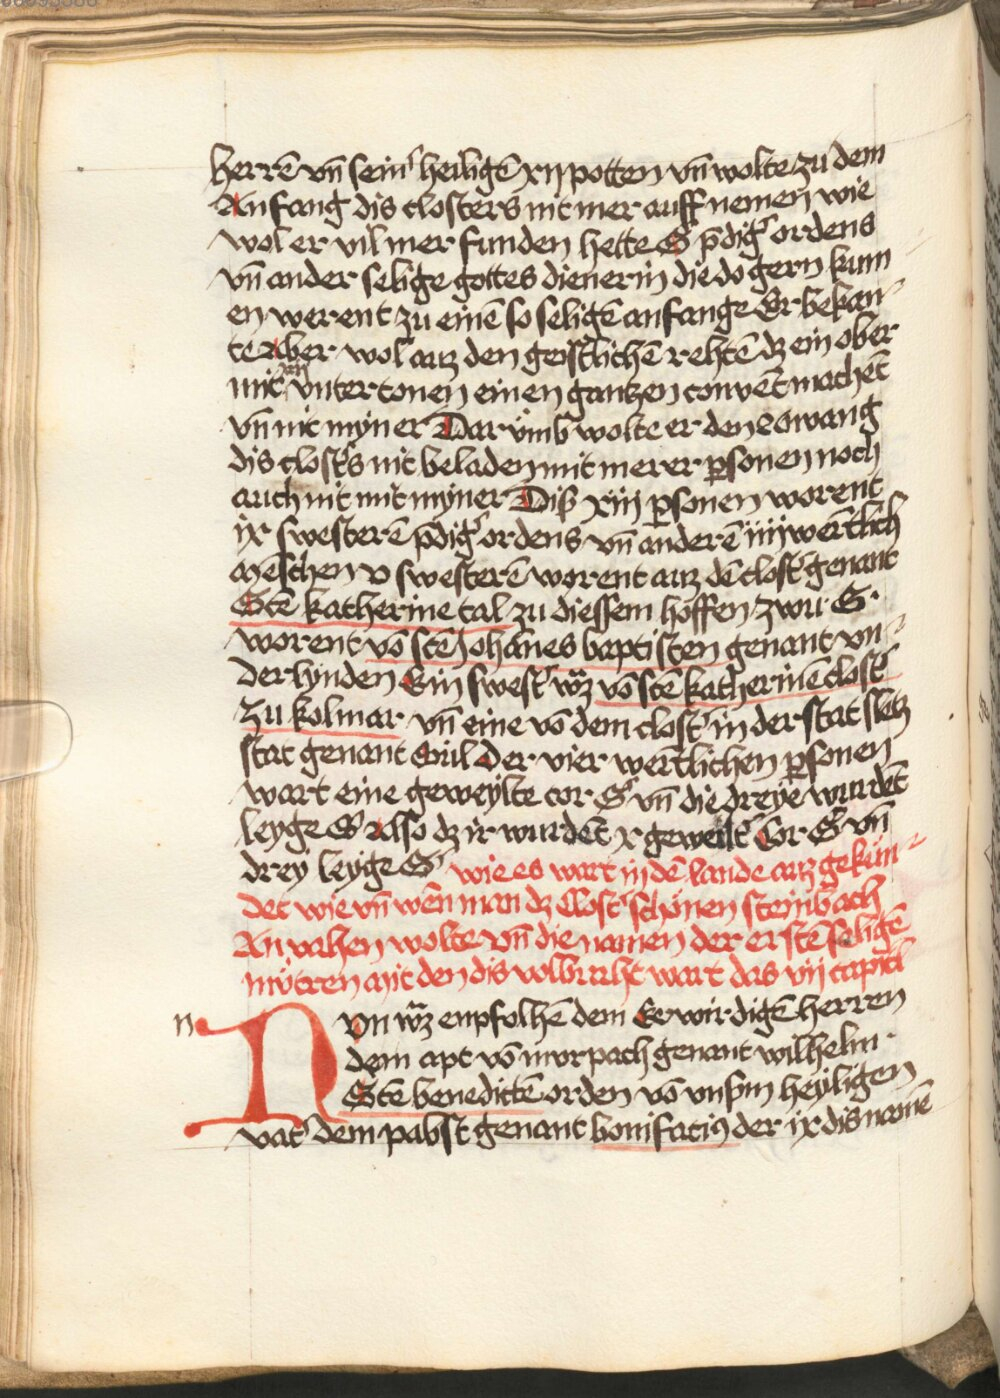 herrē vn̄ seinˀ heiligē xij potten vn̄ wolte zu dem
Anfang dis closters nit mer auff nemen wie
wol er vil mer funden hette S p̄digˀ ordens
vn̄ ander selige gottes dienerin die do gern kum
en werent zu einē so seligē anfange Er bekan
te aber wol auz den geistlichē rehtē dz ein ober
mit xij vntertonen einen gantzen convēt machēt
vn̄ nit myner Dar vmb wolte er den
dis clostˀs nit beladen mit merer p̱sonen noch
auch nit mit myner Diß xiij p̱sonen worent
ix swesterē p̄digˀ ordens vn̄ anderē iiij wertlich
Menschen v swesterē worent auz dē clostˀ genant
Stē katherine tal zu diessem hoffen zwu S·
worent vō stē Johānes baptisten genant vn
der lynden Ein swestˀ wz vō stē katherinē clostˀ
zu kolmar vn̄ eine vō dem clostˀ in der stat sletz
stat genant Süil Der vier wertlichen p̱sonen
wart eine geweylte cor S vn̄ die dreye wurdēt
leyge S Also dz ir wurdēt x geweiltˀ Cor S vn̄
drey leyge S wie es wart in dē lande auz gekün
det wie vn̄ wēn man dz Clostˀ schönen steinbach
An vahen wolte vn̄ die namen der erstē seligē
mütren mit den dis volbraht wart das vij capitl
n
Nvn wz enpfolhē dem Erwirdigē herren
dem apt vō morpach genant wilhelm
Stē benedictē orden vō vnsm̄ heyligen
vatˀ dem pabst genant bonifaciꝯ der ix dis namē